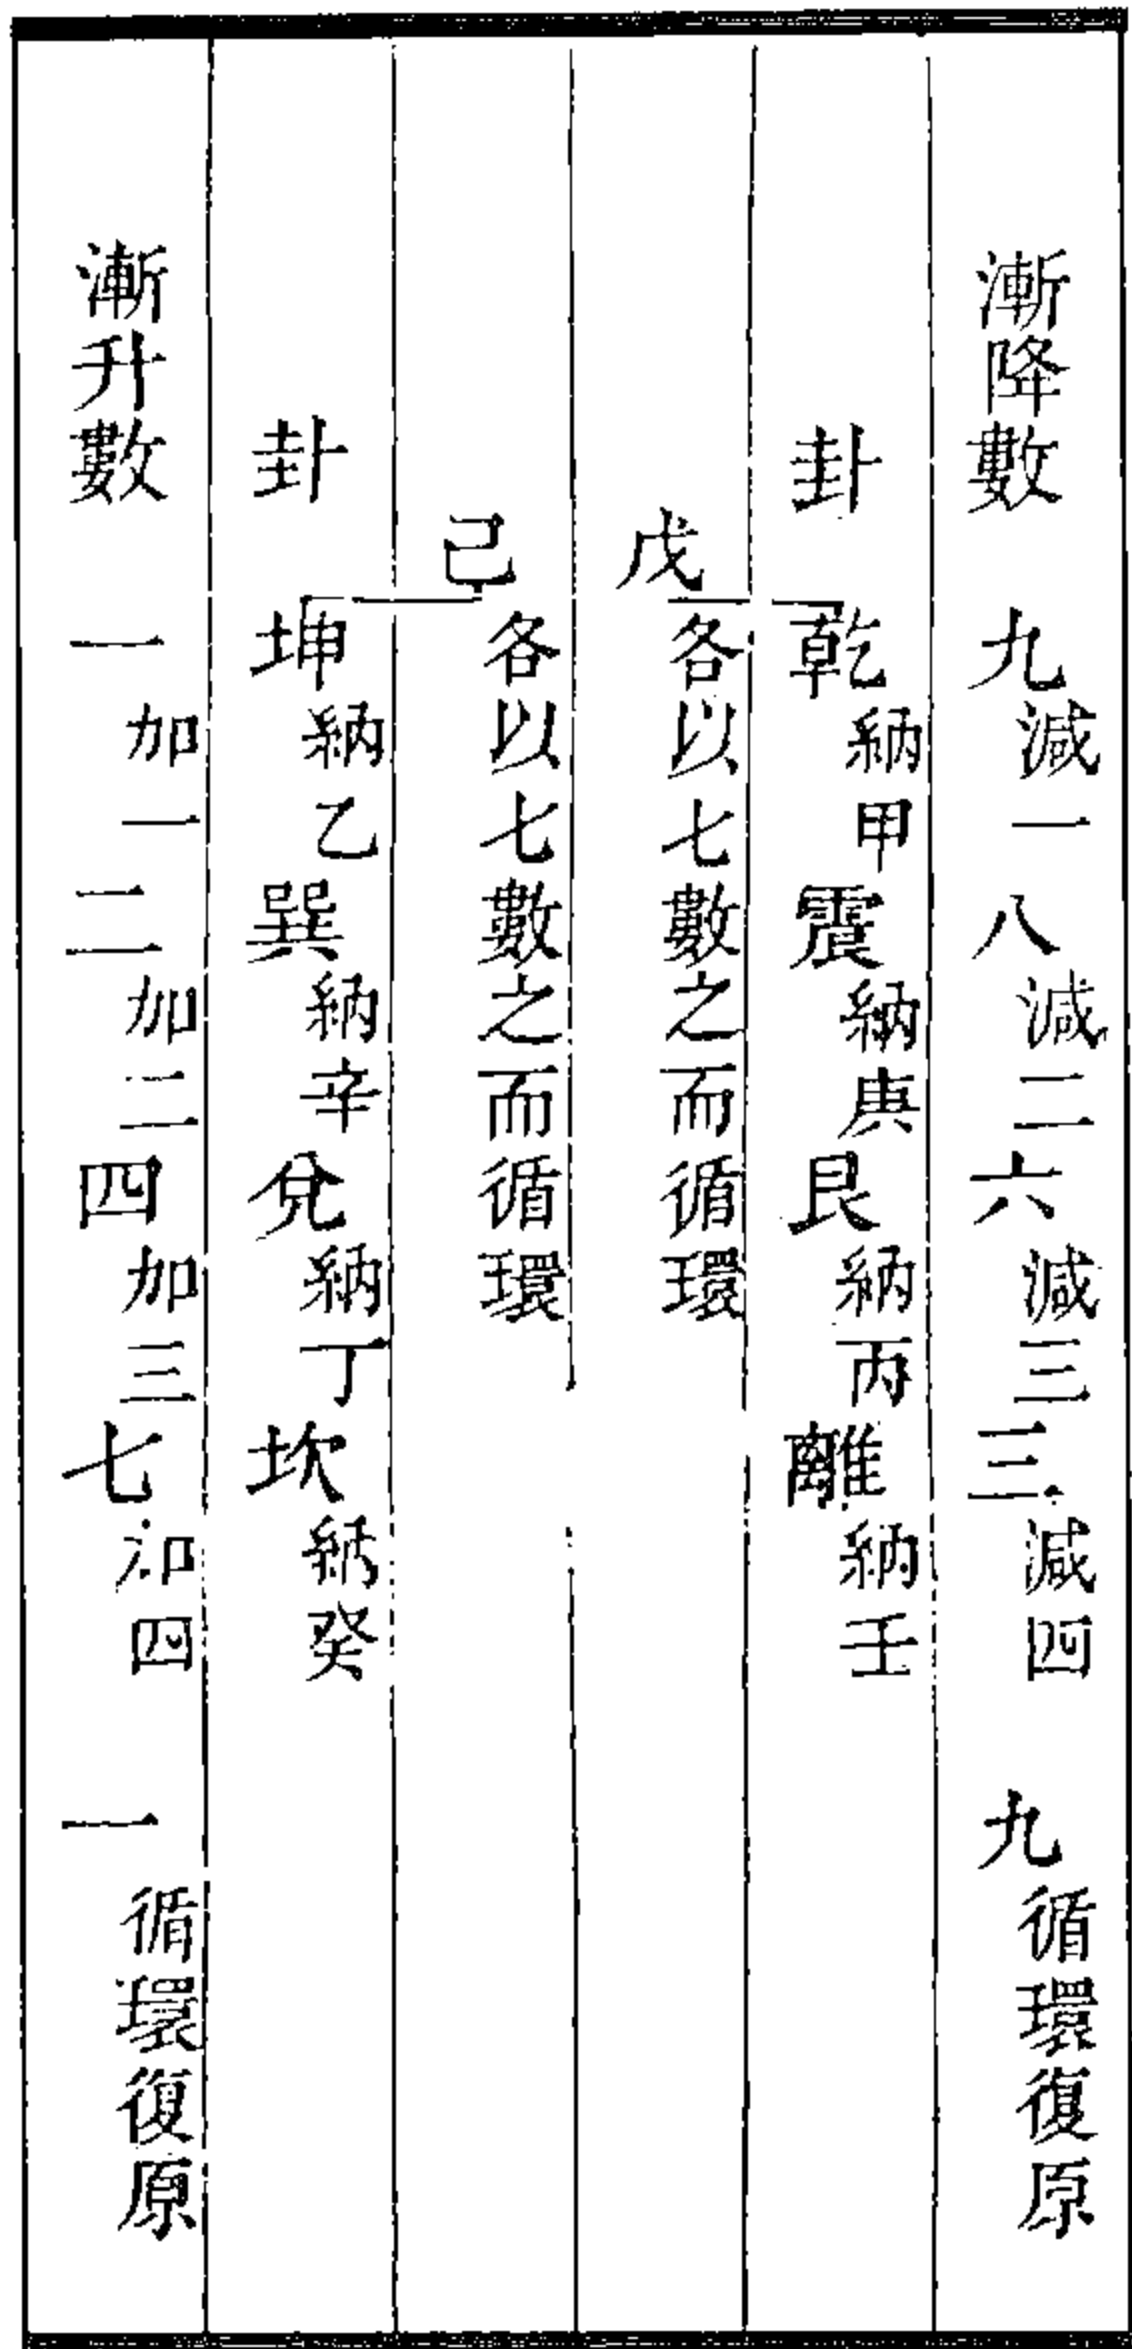 漸降數 九減一八減二六減三三減四 九循環復原
卦 乾納甲震納庚艮納丙離納壬
戊 各以七數之而循環
己 各以七數之而循環
卦 坤納乙巽納辛兌納丁坎納癸
漸升數 一加一二加二四加三七加四 一循環復原